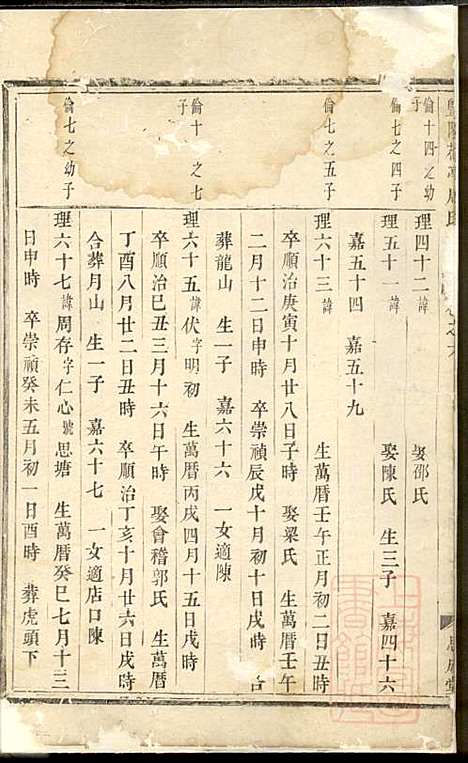 暨陽 周氏
倫十四之幼子
理四十二諱 娶邵氏
倫七之四子
理五十一諱 娶陳氏 生三子 嘉四十六
嘉五十四 嘉五十九
倫七之五子
理六十三諱 生萬曆壬午正月初二日丑時
卒順治庚寅十月廿八日子時 娶梁氏 生萬曆壬午
二月十二日申時 卒崇禎辰戊十月初十日戌時 合
葬龍山 生一子 嘉六十六 一女適陳
倫十 之七子
理六十五諱伏字明初 生萬曆丙戌四月十五日戌時
卒順治己丑三月十六日午時 娶會稽郭氏 生萬曆
丁酉八月廿二日丑時 卒順治丁亥十月廿六日戌時
合葬月山 生一子 嘉六十七 一女適店口陳
倫七之幼子
理六十七諱周存字仁心號思塘 生萬曆癸巳七月十三
日申時 卒崇禎癸未五月初一日酉時 葬虎頭下